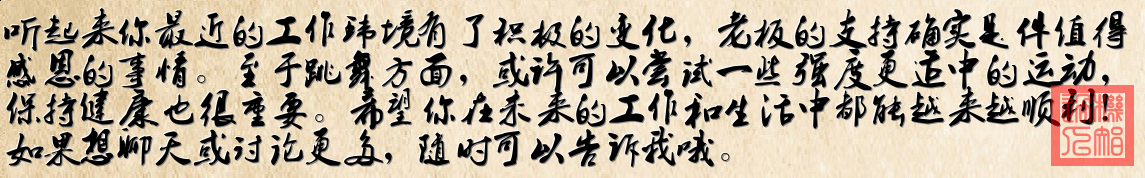 听起来你最近的工作环境有了积极的变化，老板的支持确实是件值得
感恩的事情。至于跳舞方面，或许可以尝试一些强度更适中的运动，
保持健康也很重要。希望你在未来的工作和生活中都能越来越顺利！
如果想聊天或讨论更多，随时可以告诉我哦。